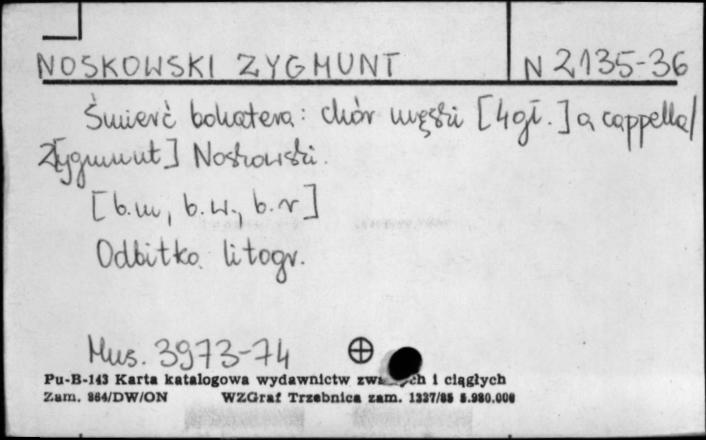 NOSKOWSKI ZYGMUNT N 2135-36
Śmierć bohatera: chór męski [4 gł.] a cappella/
Z[ygmunt] Noskowski.
[b.m, b.w., b.r]
Odbitka litogr.
Mus. 3973-74
Pu-B-143 Karta katalogowa wydawnictw i ciągłych
Zam. 864/DW/ON WZGraf Trzebnica zam. 1327/85 5.980.000